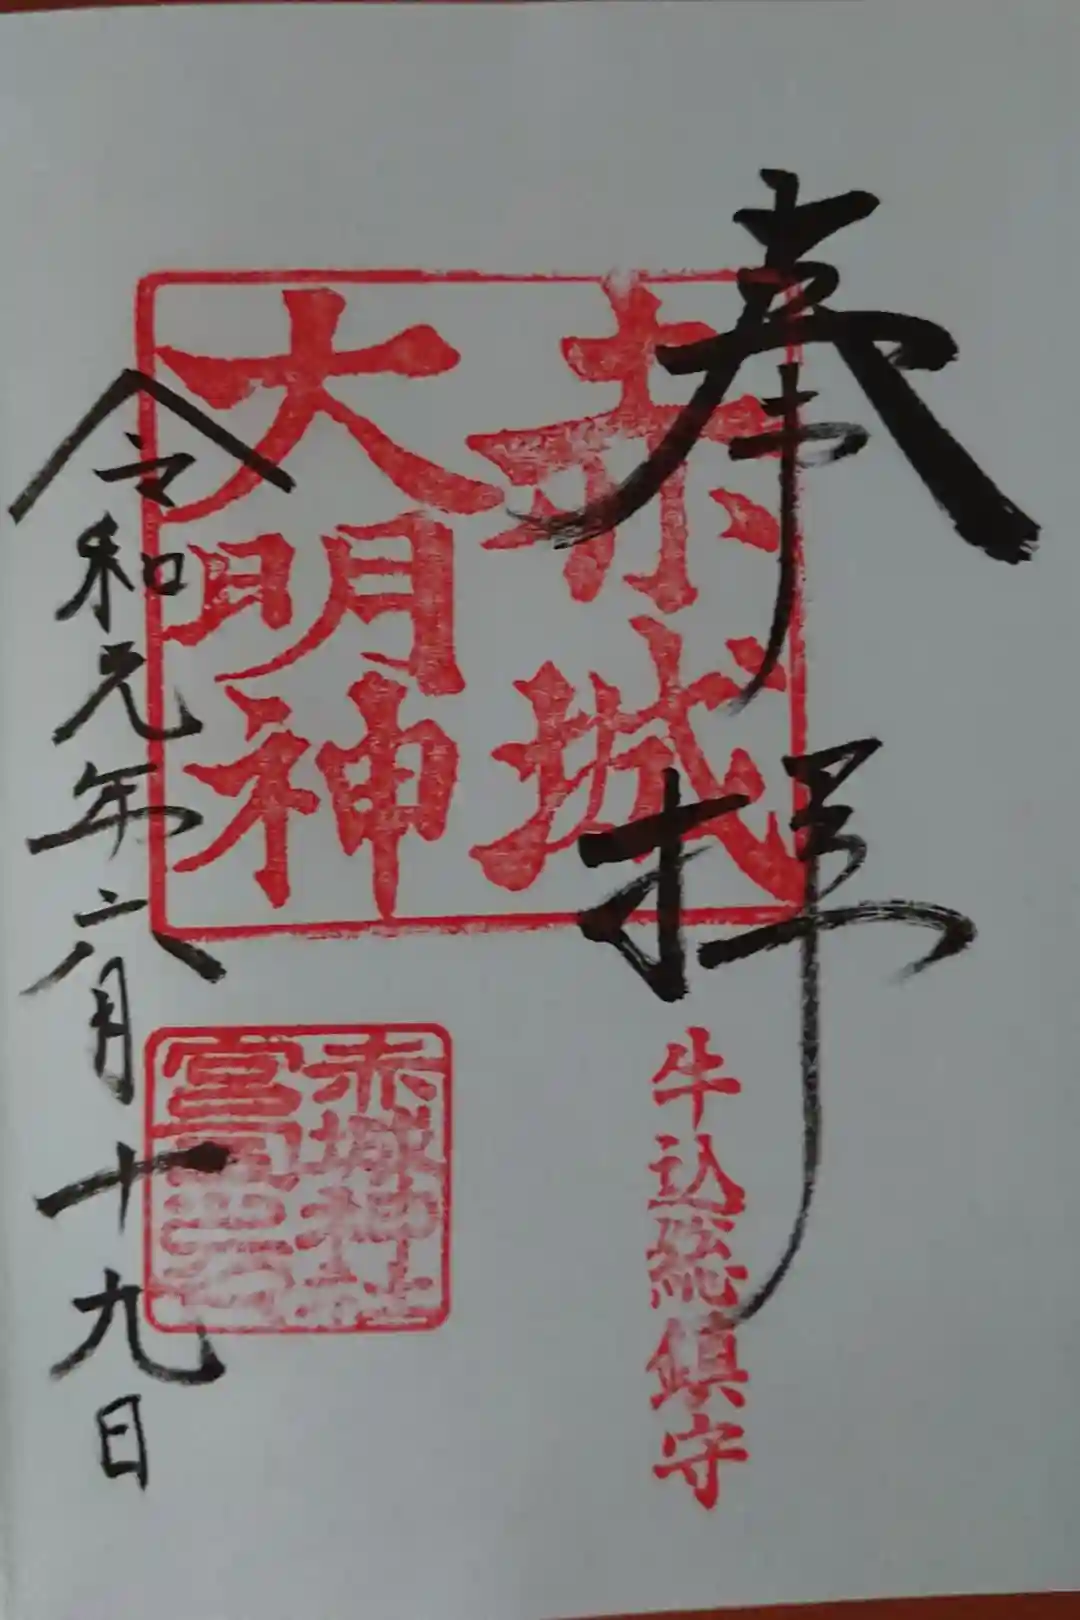 奉拝
牛込総鎮守
赤城
大明神
赤城神社
宮司之印
令和元年六月十九日